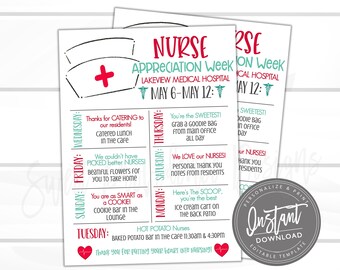 NURSE
APPRECIATION WEEK
LAKEVIEW MEDICAL HOSPITAL
MAY 6-MAY 12:
WEDNESDAY:
Thanks for CATERING to
our residents!
CATERED LUNCH
IN THE CAFE
THURSDAY:
You're the SWEETEST!
GRAB A GOODIE BAG
FROM MAIN OFFICE
ALL DAY
FRIDAY:
We couldn't have
PICKED better NURSES!
BEAUTIFUL FLOWERS FOR
YOU TO TAKE HOME
SATURDAY:
We LOVE our NURSES!
PERSONAL THANK YOU
NOTES FROM RESIDENTS
SUNDAY:
You are as SMART as
a COOKIE!
COOKIE BAR IN THE
LOUNGE
MONDAY:
Here's The SCOOP,
you're the best
ICE CREAM CART ON
THE BACK PATIO
TUESDAY:
HOT POTATO Nurses
BAKED POTATO BAR IN THE CAFE 11:30AM & 4:30PM
Thank you for putting your heart into nursing!
PERSONALIZE & PRINT
Instant
DOWNLOAD
EDITABLE TEMPLATE